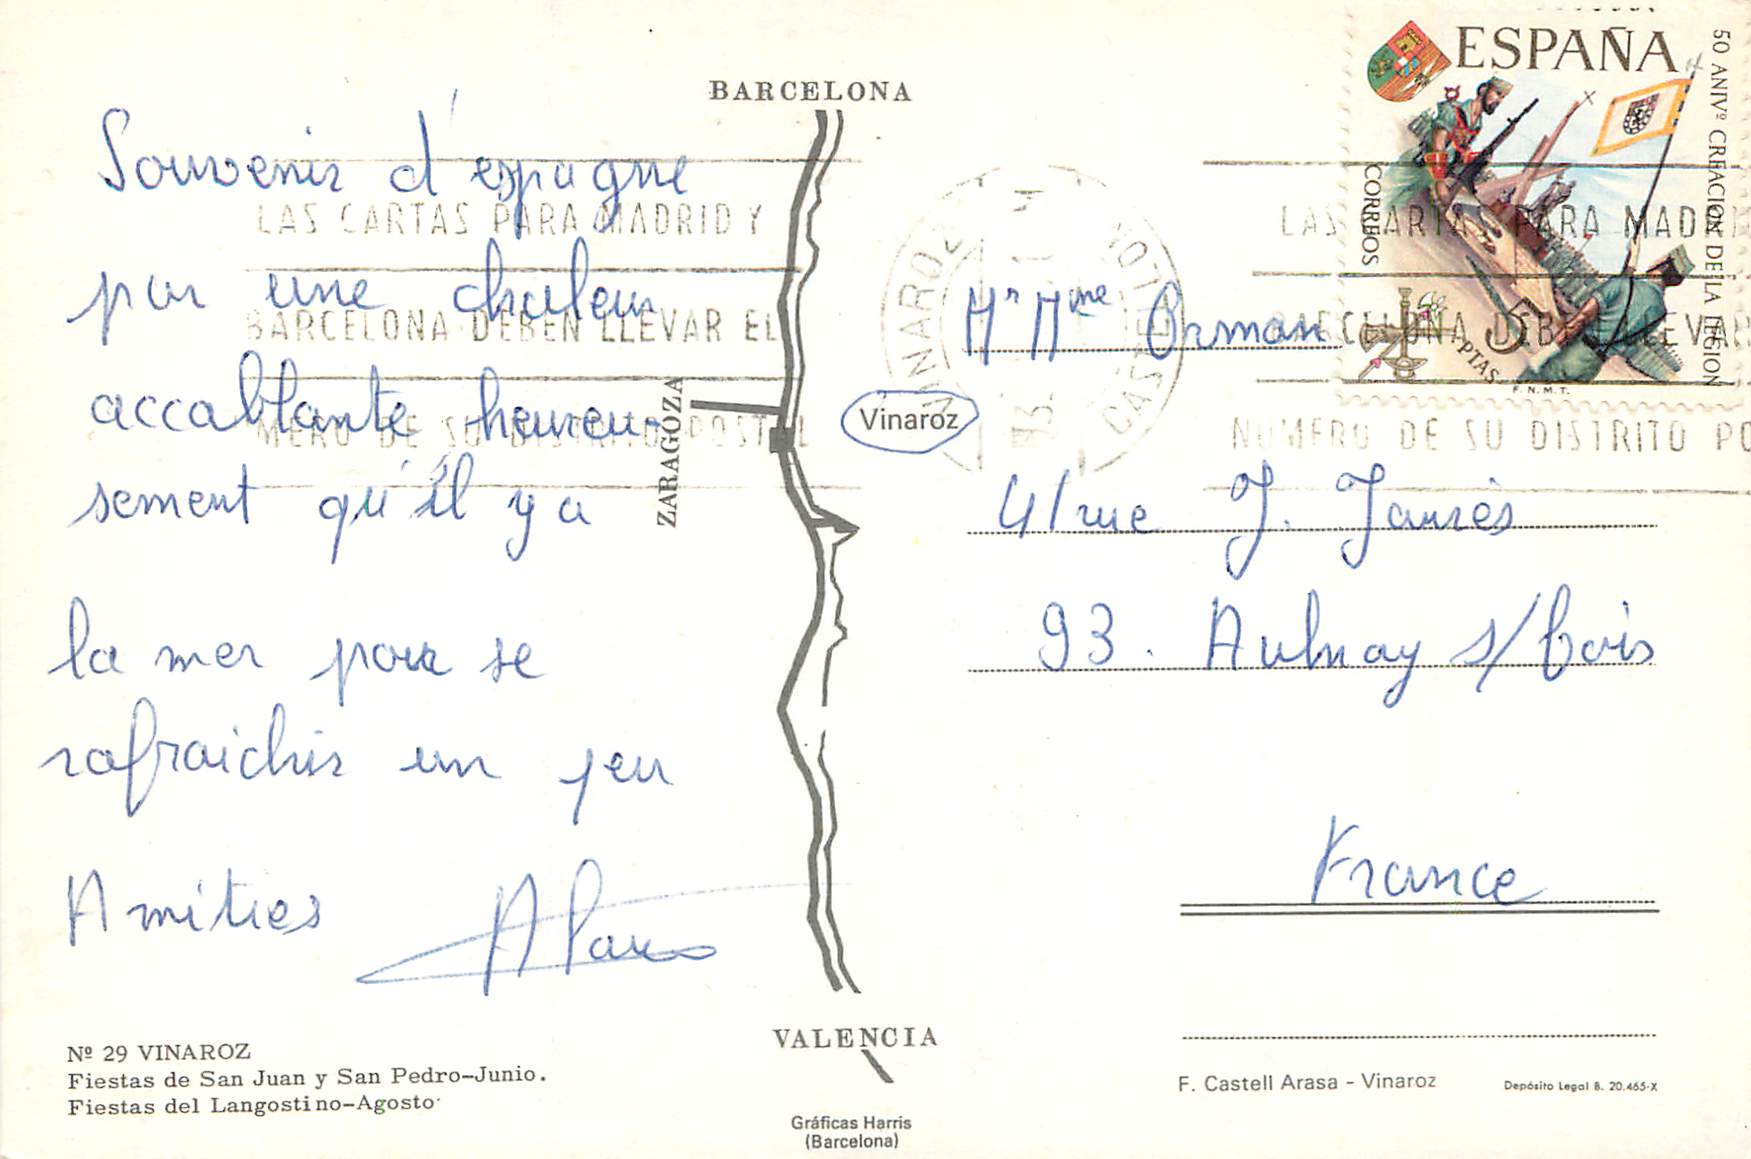 BARCELONA
Souvenir d'espagne
par une chaleur
accablante heureu-
sement qu'il y a
la mer pour se
rafraichir un peu
Amities
ZARAGOZA
Vinaroz
VALENCIA
Nº 29 VINAROZ
Fiestas de San Juan y San Pedro-Junio.
Fiestas del Langostino-Agosto
Gráficas Harris
(Barcelona)
LAS CARTAS PARA MADRID Y
BARCELONA DEBEN LLEVAR EL
NUMERO DE SU DISTRITO POSTAL
VINAROZ
CASTELLON
ESPAÑA
CORREOS
50 ANIVº CREACION DE LA LEGION
5 PTAS
F.N.M.T.
LAS CARTAS PARA MADR
BARCELONA DEBEN LLEVAR
NUMERO DE SU DISTRITO PO
Mr Mme Orman
41 rue J. Jaurès
93. Aulnay s/bois
France
F. Castell Arasa - Vinaroz
Depósito Legal B. 20.465-X